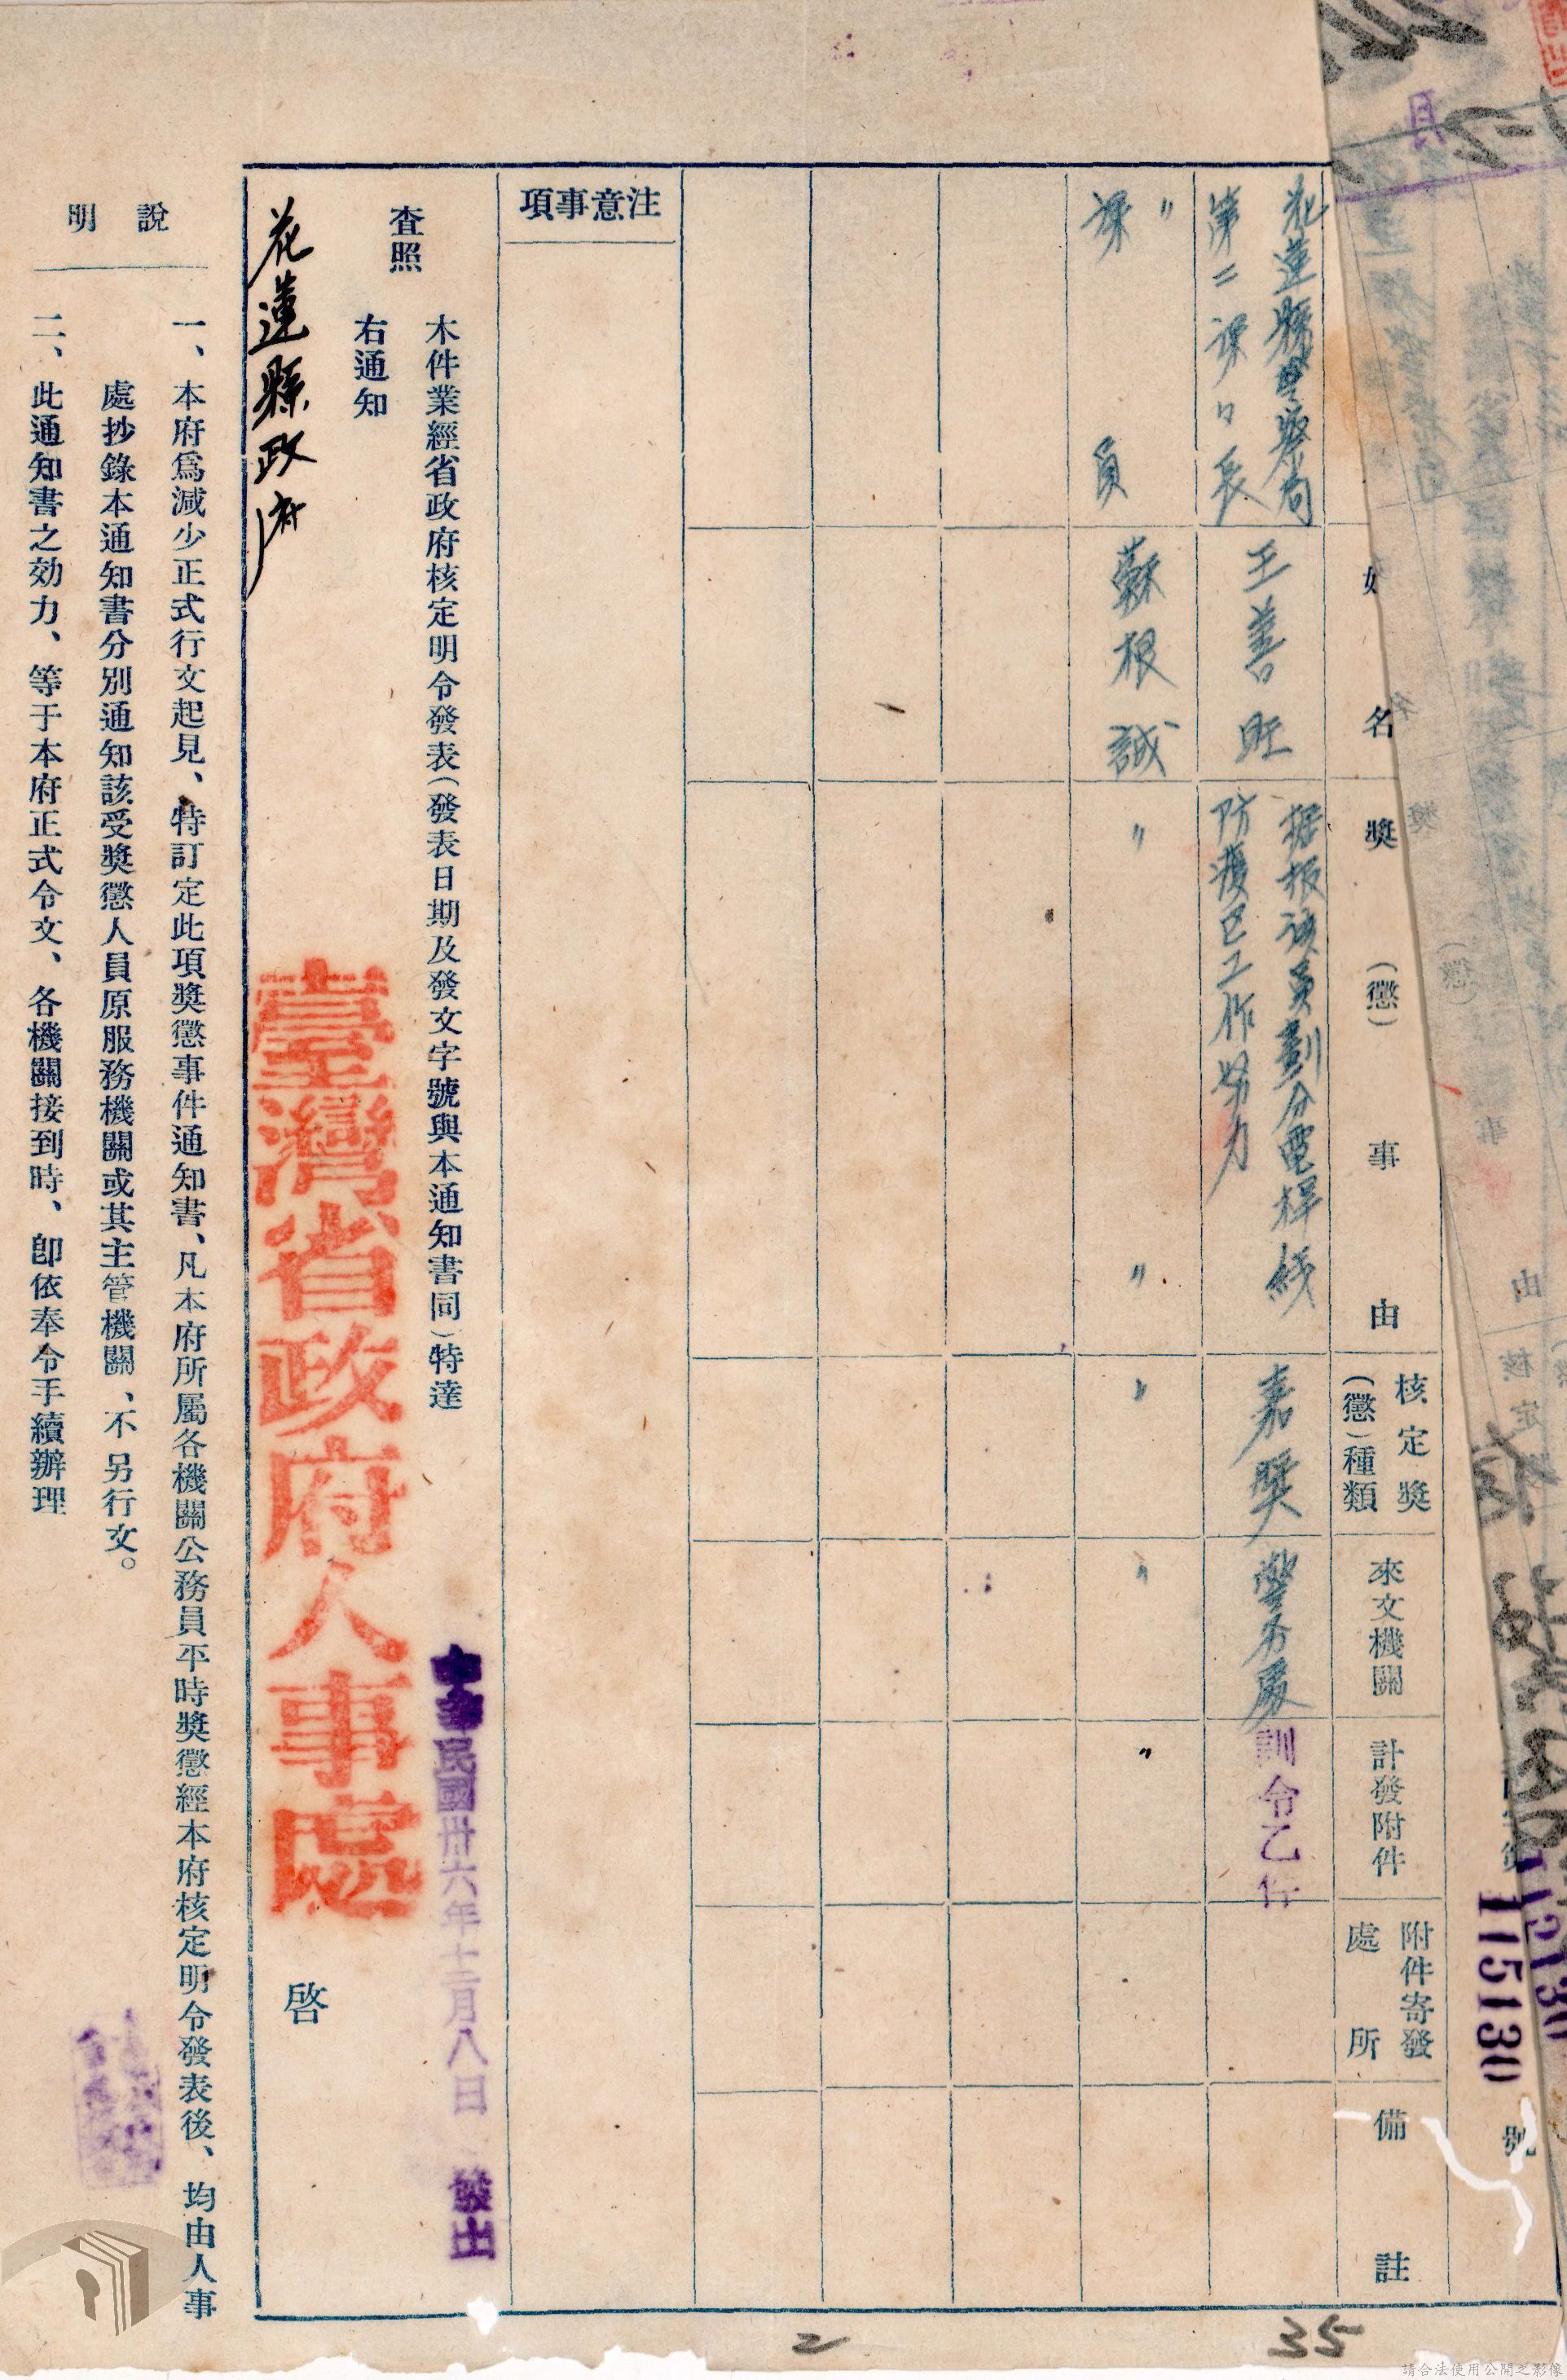 號
115130
12130
名
獎
(懲)
事
由
核定獎
(懲)種類
來文機關
計發附件
附件寄發
處所
備註
花蓮縣警察局
第二課〃長
王善旺
据报該員劃分電桿綫
防護區工作努力
嘉獎
警务處
訓令乙件
〃
課員
蘇根誠
〃
〃
〃
〃
〃
注意事項
本件業經省政府核定明令發表(發表日期及發文字號與本通知書同)特達
查照
右通知
花蓮縣政府
臺灣省政府人事處
啓
中華民國卅六年十二月八日 發出
說明
一、本府爲減少正式行文起見、特訂定此項獎懲事件通知書、凡本府所屬各機關公務員平時獎懲經本府核定明令發表後、均由人事
處抄錄本通知書分別通知該受獎懲人員原服務機關或其主管機關、不另行文。
二、此通知書之効力、等于本府正式令文、各機關接到時、卽依奉令手續辦理
2
35
請合法使用公開之影像